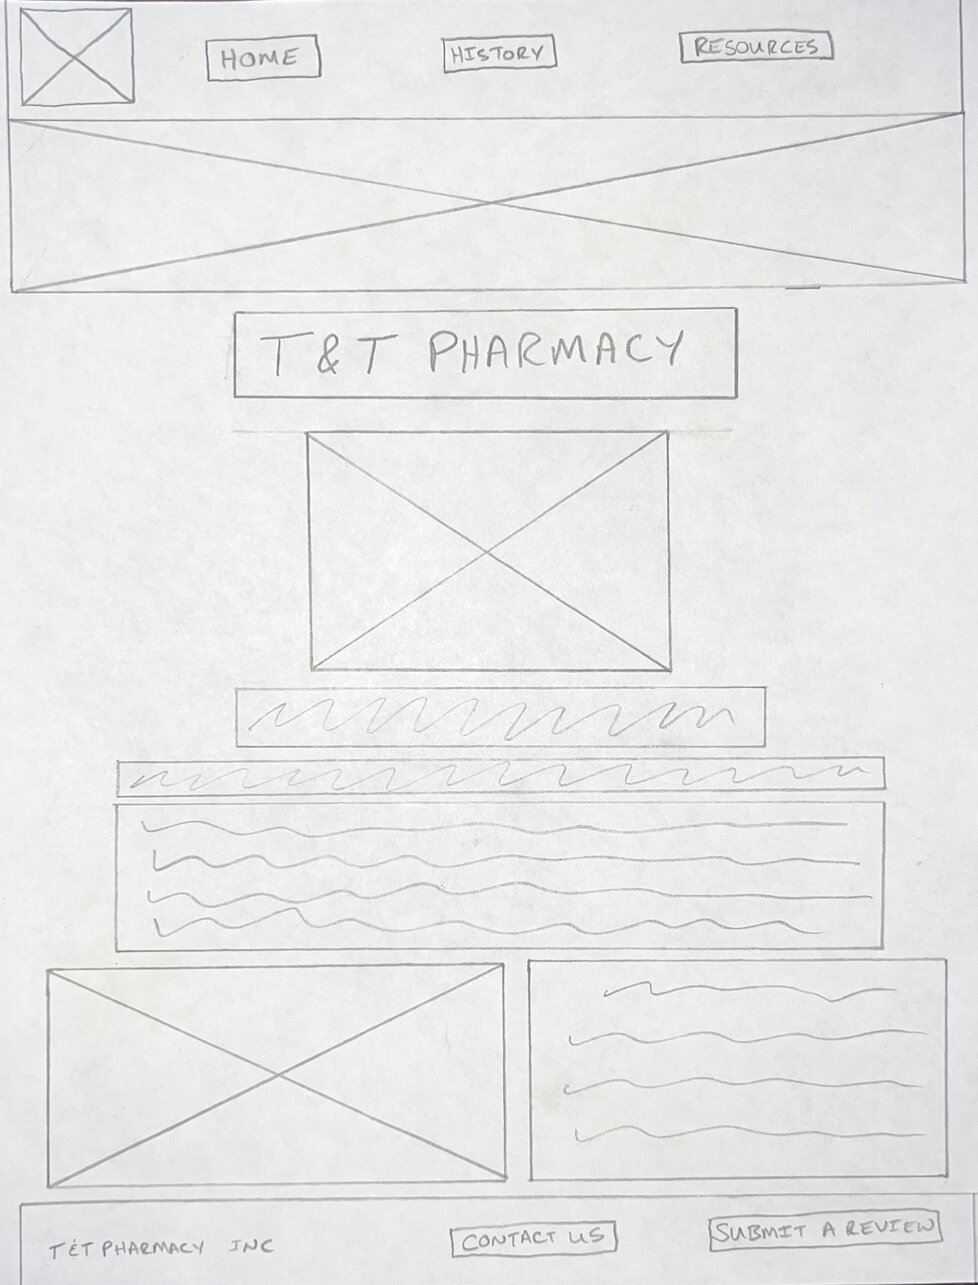 HOME HISTORY RESOURCES
T & T PHARMACY
T&T PHARMACY INC CONTACT US SUBMIT A REVIEW